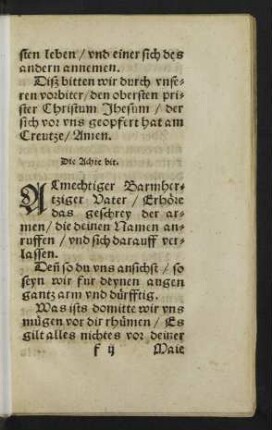 sten leben / vnd einer sich des
andern annemen.
Diß bitten wir durch vnse-
ren vorbiter / den obersten pri-
ster Christum Jhesum / der
sich vor vns geopfert hat am
Creutze / Amen.
Die Achte bit.
ALmechtiger Barmher-
tziger Vater / Erhöre
das geschrey der ar-
men / die deinen Namen an-
ruffen / vnd sich darauff ver-
lassen.
Deñ so du vns ansichst / so
seyn wir fur deynen augen
gantz arm vnd dürfftig.
Was ists domitte wir vns
mügen vor dir rhümen / Es
gilt alles nichtes vor deiner
f ij Maie